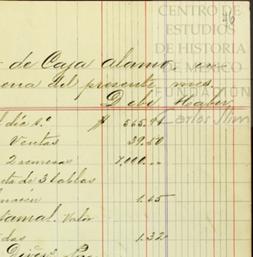 CENTRO DE
ESTUDIOS
DE HISTORIA
DE MÉXICO
FUNDACIÓN
Carlos Slim
de Caja alamo en
ena del presente mes
Debe Haber
día 1º $ 565.94
Ventas 39.50
2 remesas 7,000.--
ta de 3 tablas
1.65
Valor
das 1.32